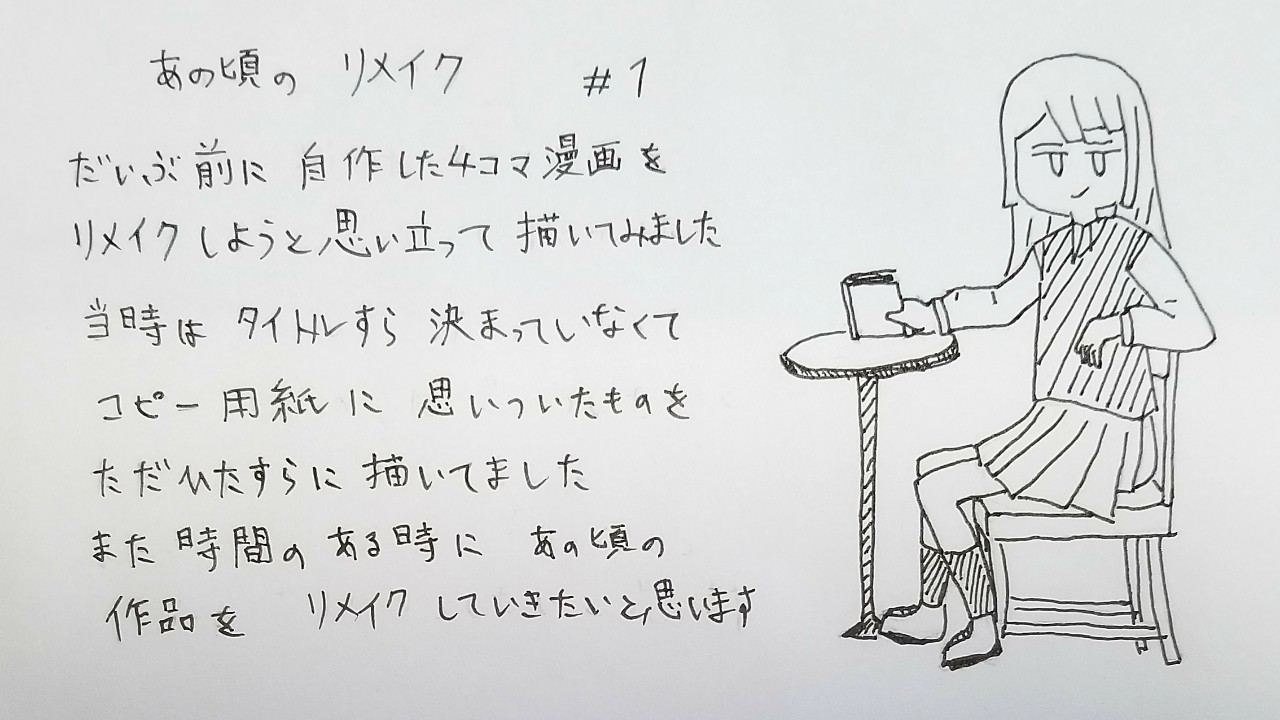 あの頃の リメイク #1
だいぶ前に 自作した4コマ漫画を
リメイクしようと思い立って 描いてみました
当時は タイトルすら 決まっていなくて
コピー用紙に 思いついたものを
ただひたすらに 描いてました
また 時間の ある時に あの頃の
作品を リメイク していきたいと思います